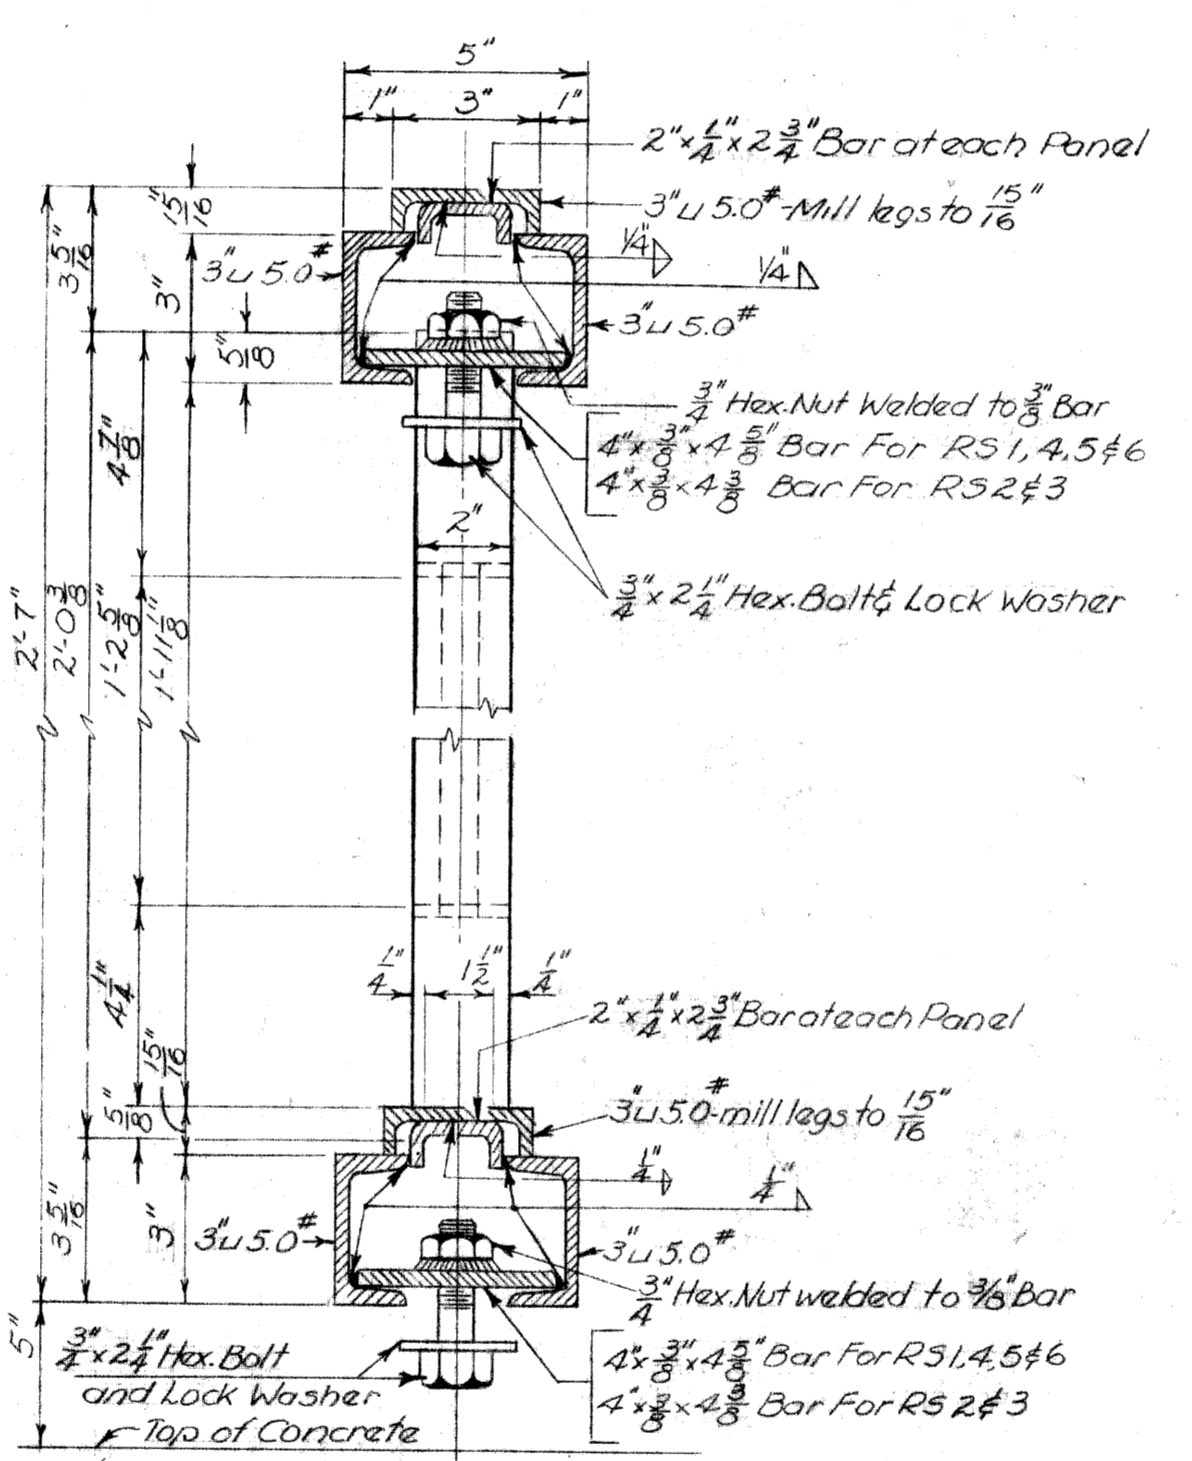 5"
1" 3" 1"
2" x 1/4" x 2 3/4" Bar at each Panel
3" ⊔ 5.0# - Mill legs to 15/16"
15/16"
3 5/16"
3" ⊔ 5.0#
1/4"
1/4"
3"
3" ⊔ 5.0#
5/8"
3/4" Hex. Nut Welded to 3/8" Bar
4" x 3/8" x 4 5/8" Bar For RS 1, 4, 5 & 6
4" x 3/8 x 4 3/8 Bar For RS 2 & 3
4 7/8"
2"
3/4" x 2 1/4" Hex. Bolt & Lock Washer
2'-7"
2'-0 3/8
1'-2 5/8"
1'-11 1/8"
1/4" 1 1/2" 1/4"
4 1/4"
2" x 1/4" x 2 3/4" Bar at each Panel
15/16"
5/8"
3" ⊔ 5.0# - mill legs to 15/16"
1/4"
1/4"
3 5/16"
3"
3" ⊔ 5.0#
3" ⊔ 5.0#
3/4" Hex. Nut welded to 3/8" Bar
5"
3/4" x 2 1/4" Hex. Bolt
and Lock Washer
4" x 3/8" x 4 5/8" Bar For RS 1, 4, 5 & 6
4" x 3/8 x 4 3/8 Bar For RS 2 & 3
Top of Concrete